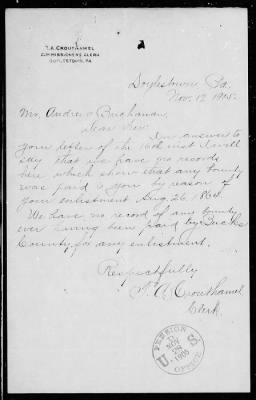 T. A. CROUTHAMEL
COMMISSIONERS CLERK
DOYLESTOWN, PA.
Doylestown Pa.
Nov. 17 1905.
Mr. Andrew Buchanan,
Dear Sir
In answer to
your letter of the 16th inst I will
say that we have no records
here which show that any bounty
was paid to you by reason of
your enlistment Aug. 26 1864.
We have no record of any bounty
ever having been paid by Bucks
County for any enlistment.
Respectfully
T. A. Crouthamel
Clerk.
PENSION
U. S.
NOV
1905
OFFICE